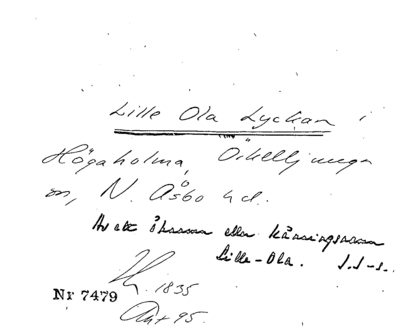 Lille Ola Lyckan i
Högaholma, Örkelljunga
sn, N. Åsbo hd.
Av ett öknamn eller
Lille-Ola. J.J-s.
1835
Ant 95.
Nr 7479